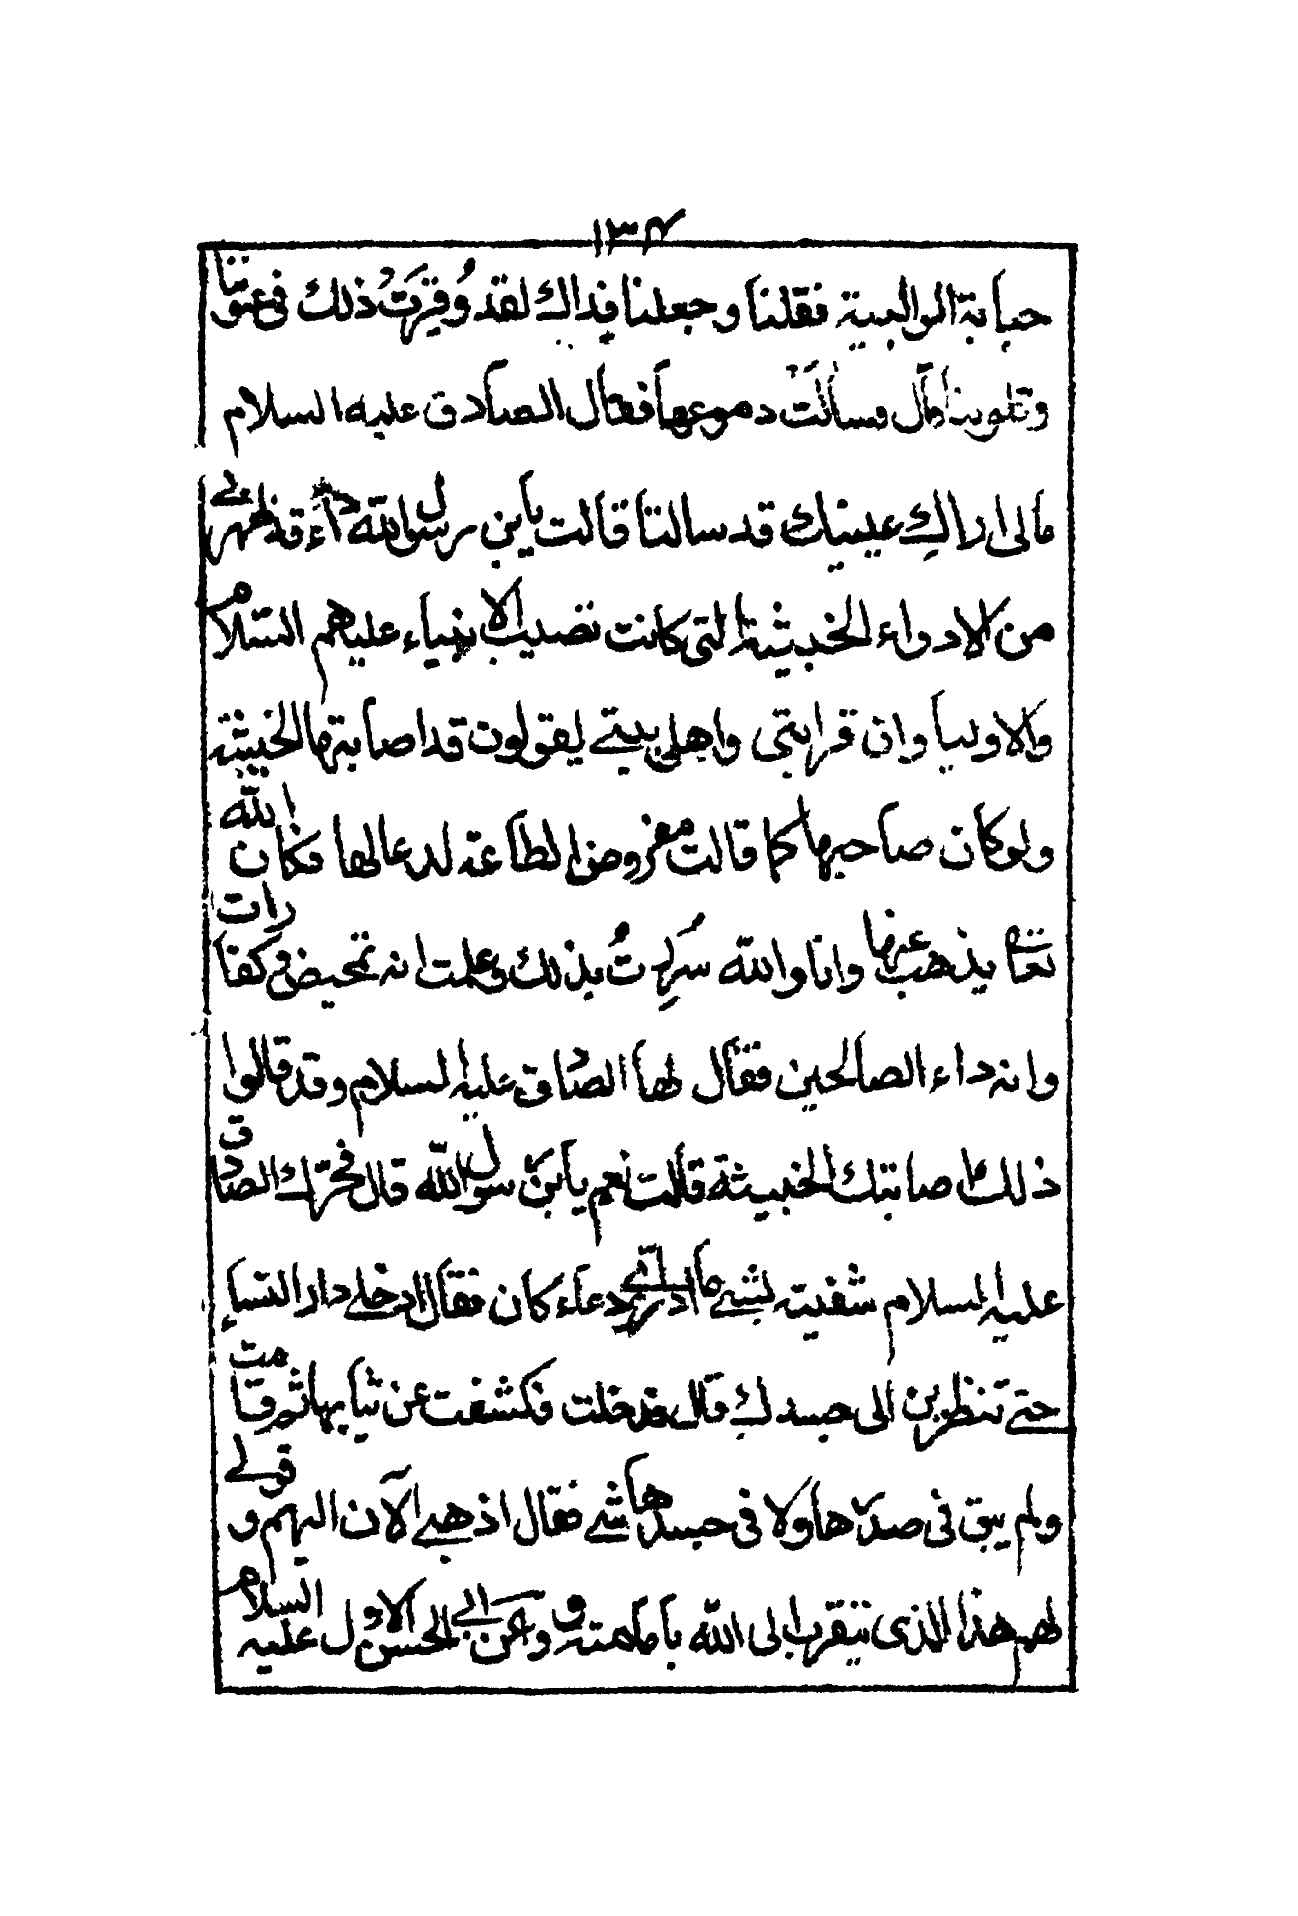 ١٣٤
حبابة الوالبية فقلنا وجعلنا فداك لقد وُقِرَتْ ذلك فى عيوننا
وقلوبنا مال وسالت دموعها فقال الصادق عليه السلام
مالى اراك عيناك قد سالتا قالت يابن رسول الله داء قد ظهر بى
من الادواء الخبيثة التى كانت تصيب الانبياء عليهم السّلام
والاولياء وان قرابتى واهل بيتى يقولون قد اصابتها الخبيثة
ولو كان صاحبها كما قالت مفروض الطاعة لدعا لها فكان الله
تعالى يذهب عنها وانا والله سررت بذلك وعلمت انه تمحيض وكفارات
وانه داء الصالحين فقال لها الصادق عليه السلام وقد قالوا
ذلك اصابتك الخبيثة قالت نعم يابن رسول الله قال فحرّك الصادق
عليه السلام شفتيه بشىء ما ادرى اىّ دعاء كان فقال ادخلى دار النساء
حتى تنظرين الى جسدك قال فدخلت فكشفت عن ثيابها ثم قامت
ولم يبق فى صدرها ولا فى جسدها شىء فقال اذهبى الآن اليهم وقولى
لهم هذا الذى يتقرب الى الله بامامته وعن ابى الحسن الاول عليه السلام